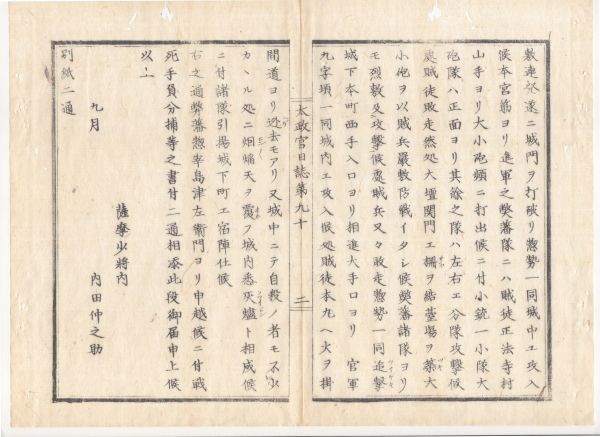 敷走候遂ニ城門ヲ打破リ惣勢一同城中エ攻入
候本宮筋ヨリ進軍之弊藩隊ニハ賊徒正法寺村
山手ヨリ大小砲頻ニ打出候ニ付小銃一小隊大
砲隊ハ正面ヨリ其餘之隊ハ左右エ分隊攻撃候
處賊徒敗走然処大壇関門エ柵ヲ結臺場ヲ築大
小砲ヲ以賊兵嚴敷防戦イタシ候弊藩諸隊ヨリ
モ烈敷及攻撃候處賊兵又々敗走惣勢一同追撃
城下本町西手入口ヨリ相進大手口ヨリ 官軍
九字頃一同城内エ攻入候処賊徒本丸ヘ火ヲ掛
太政官日誌第九十
二
間道ヨリ逃去モアリ又城中ニテ自殺ノ者モ不少
カヽル処ニ烟焔天ヲ覆ヲ城内悉灰燼ト相成候
ニ付諸隊引揚城下町エ宿陣仕候
右之通弊藩惣宰島津左衞門ヨリ申越候ニ付戦
死手負分捕等之書付二通相添此段御届申上候
以上
薩摩少將内
九月 内田仲之助
別紙二通